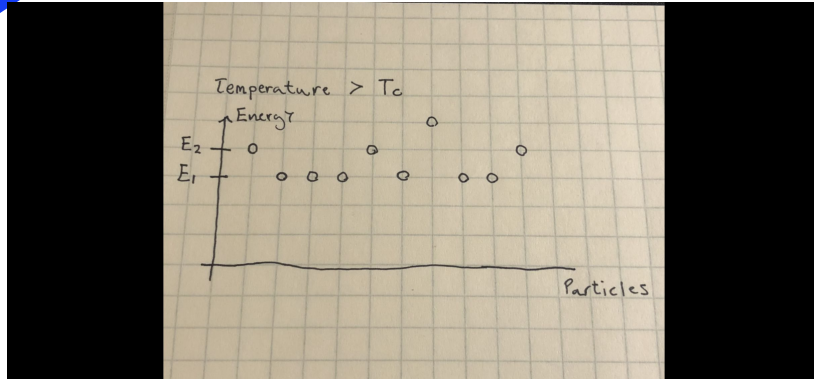 Temperature > Tc
Energy
E2
E1
Particles